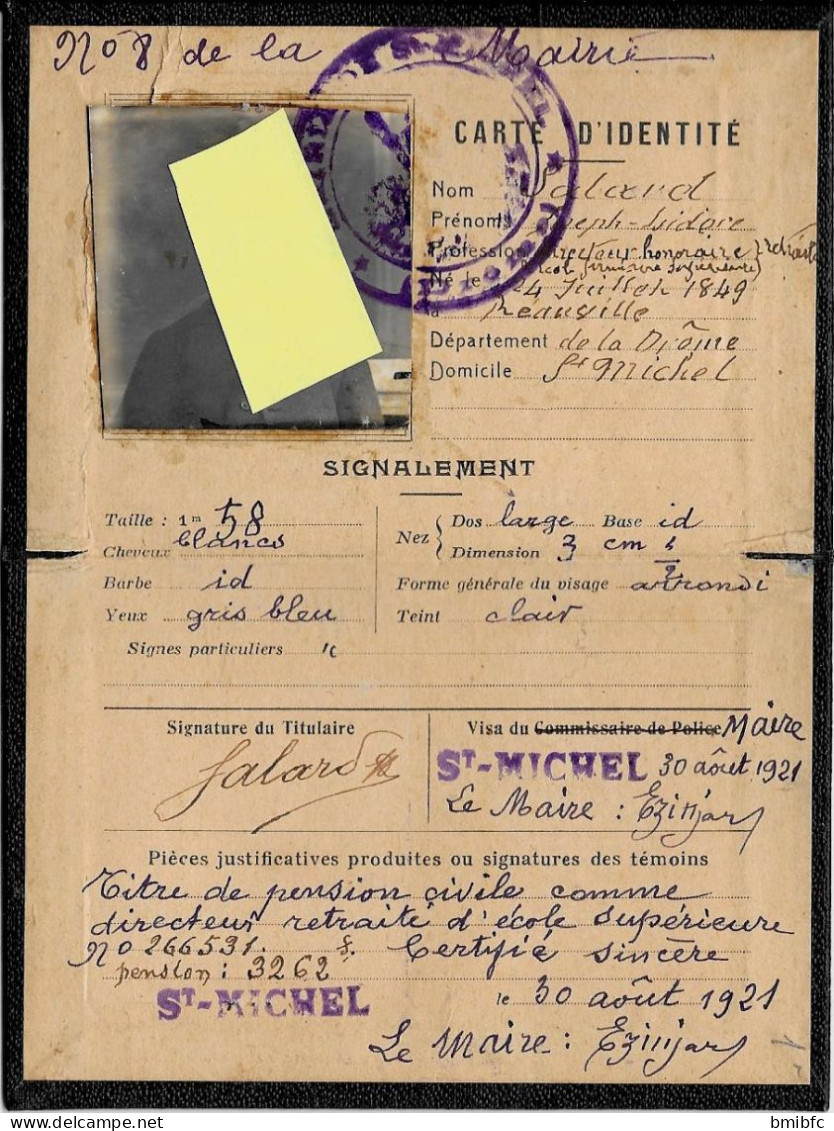 No 8 de la Mairie
MAIRIE DE ST MICHEL
CARTE D'IDENTITÉ
Nom Salard
Prénoms Joseph-Isidore
Profession Directeur honoraire } retraité
École primaire supérieure)
Né le 24 Juillet 1849
à Réauville
Département de la Drôme
Domicile St Michel
SIGNALEMENT
Taille : 1m 58
Cheveux blancs
Barbe id
Yeux gris bleu
Nez { Dos large Base id
Dimension 3 cm
Forme générale du visage arrondi
Teint clair
Signes particuliers "
Signature du Titulaire
Salard
Visa du Commissaire de Police Maire
ST-MICHEL 30 août 1921
Le Maire :
Pièces justificatives produites ou signatures des témoins
Titre de pension civile comme
directeur retraité d'école supérieure
No 266531. Certifié sincère
pension : 3262 f.
ST-MICHEL le 30 août 1921
Le Maire :
bmibfc